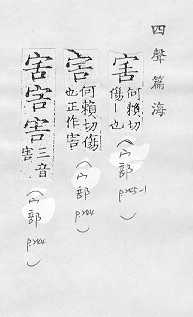 四聲篇海
害何賴切傷丨也(宀部 p205-1)
害何賴切傷也正作害(宀部 p204)
害害害三音害(宀部 p204)